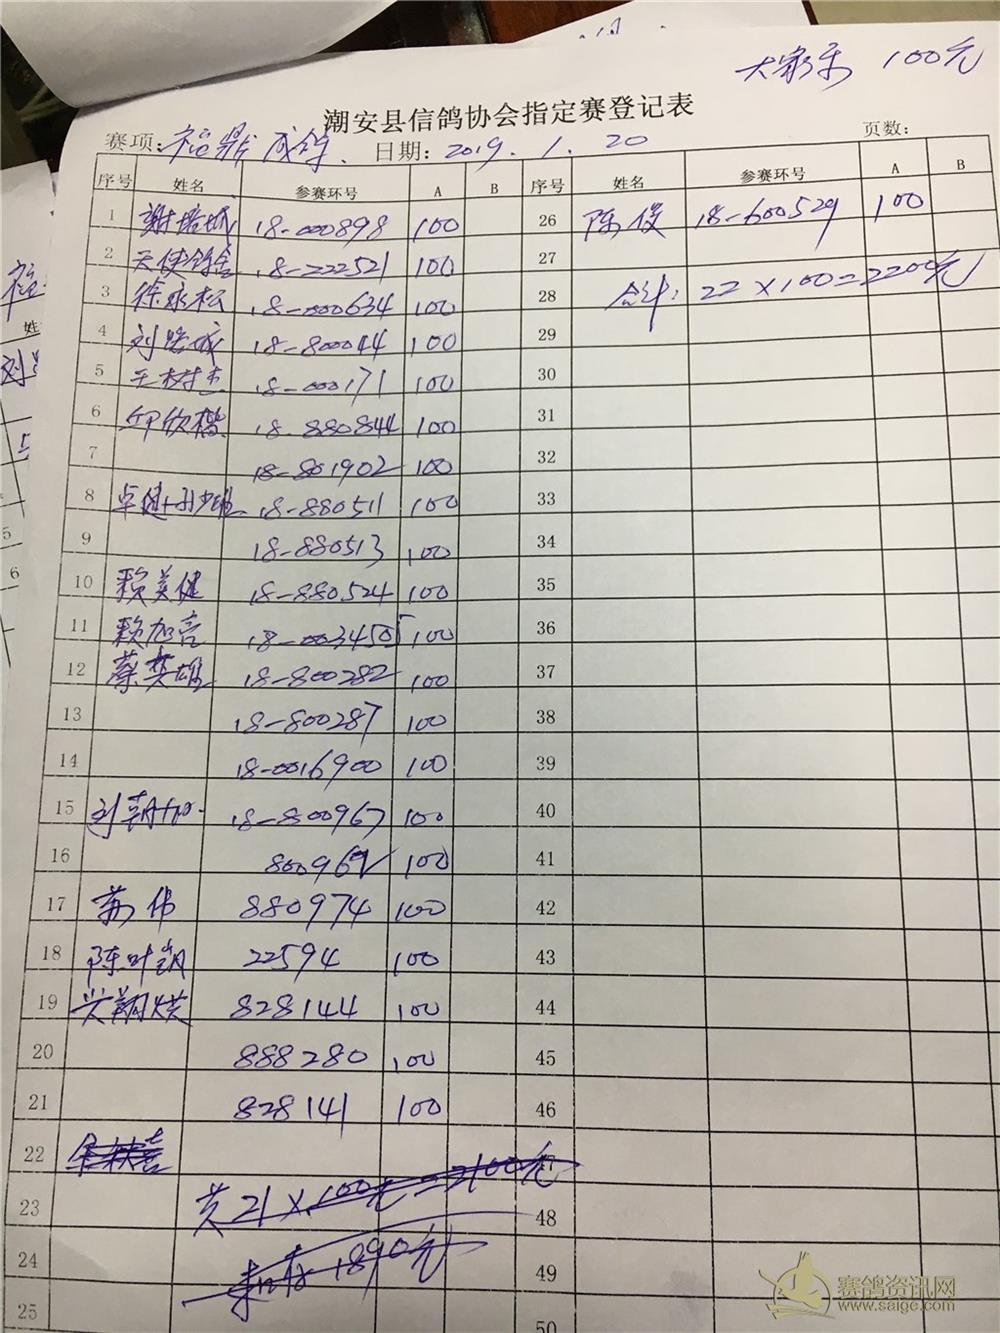 大家乐 100元
潮安县信鸽协会指定赛登记表
赛项:福鼎成鸽. 日期:2019.1.20 页数:
序号 姓名 参赛环号 A B 序号 姓名 参赛环号 A B
1 谢培城 18-000898 100 26 陈俊 18-600529 100
2 天使鸽舍 18-222521 100 27
3 徐永松 18-000634 100 28 合计: 22×100=2200元
4 刘 城 18-800044 100 29
5 王树 18-000171 100 30
6 邱欣楷 18-880844 100 31
7 18-801902 100 32
8 卓健+孙少雄 18-880511 100 33
9 18-880513 100 34
10 赖美健 18-880524 100 35
11 赖加亮 18-003450 100 36
12 蔡英雄 18-800282 100 37
13 18-800287 100 38
14 18-0016900 100 39
15 刘朝加 18-800967 100 40
16 800969 100 41
17 苏伟 880974 100 42
18 陈叶钿 22594 100 43
19 兴翔 828144 100 44
20 888280 100 45
21 828141 100 46
22
23 共21×100元=2100元 48
24 1890元 49
25 50
赛鸽资讯网
www.saige.com